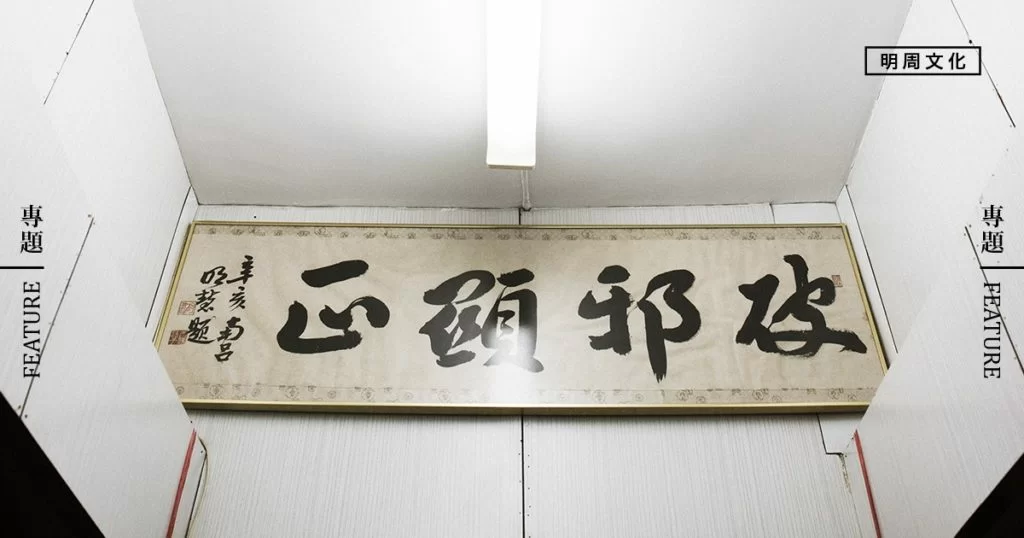 明周文化
專題
FEATURE
破邪顯正
辛亥南呂
明慧題
專題
FEATURE